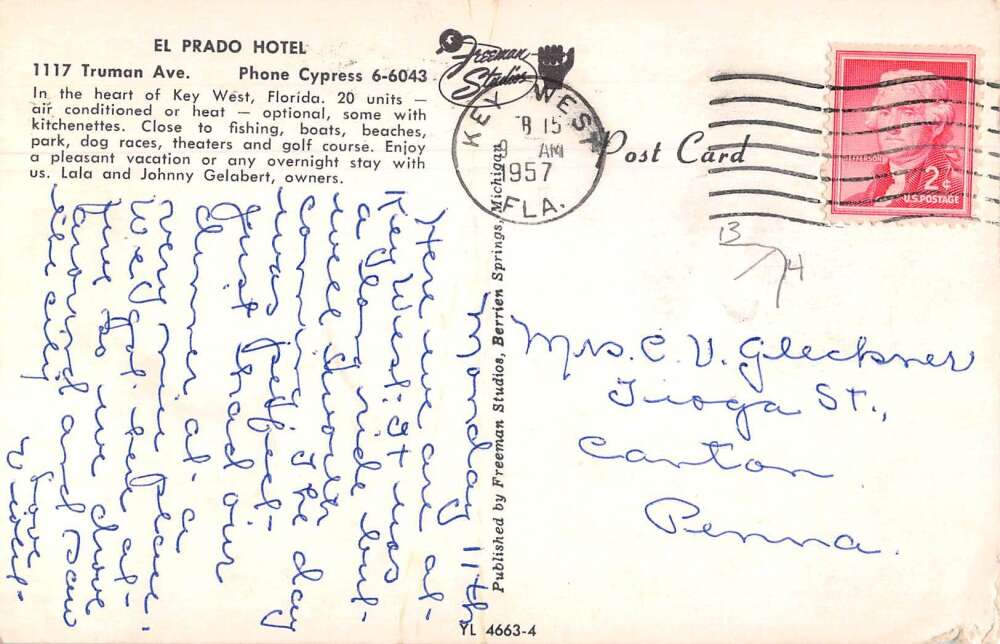 EL PRADO HOTEL
1117 Truman Ave. Phone Cypress 6-6043
In the heart of Key West, Florida. 20 units —
air conditioned or heat — optional, some with
kitchenettes. Close to fishing, boats, beaches,
park, dog races, theaters and golf course. Enjoy
a pleasant vacation or any overnight stay with
us. Lala and Johnny Gelabert, owners.
Freeman
Studios
KEY WEST
15
9 AM
1957
FLA.
Post Card
JEFFERSON
2¢
U.S. POSTAGE
13
14
Monday 11th
Here we are at
Key West. It was
a long ride but
well worth
coming. The day
was perfect.
Just had our
dinner at a
very nice place.
We got here at
two so we drove
around and saw
the city
Love
Published by Freeman Studios, Berrien Springs, Michigan
Mrs. C. V. Gleckner
Tioga St.,
Canton
Penna.
YL 4663-4